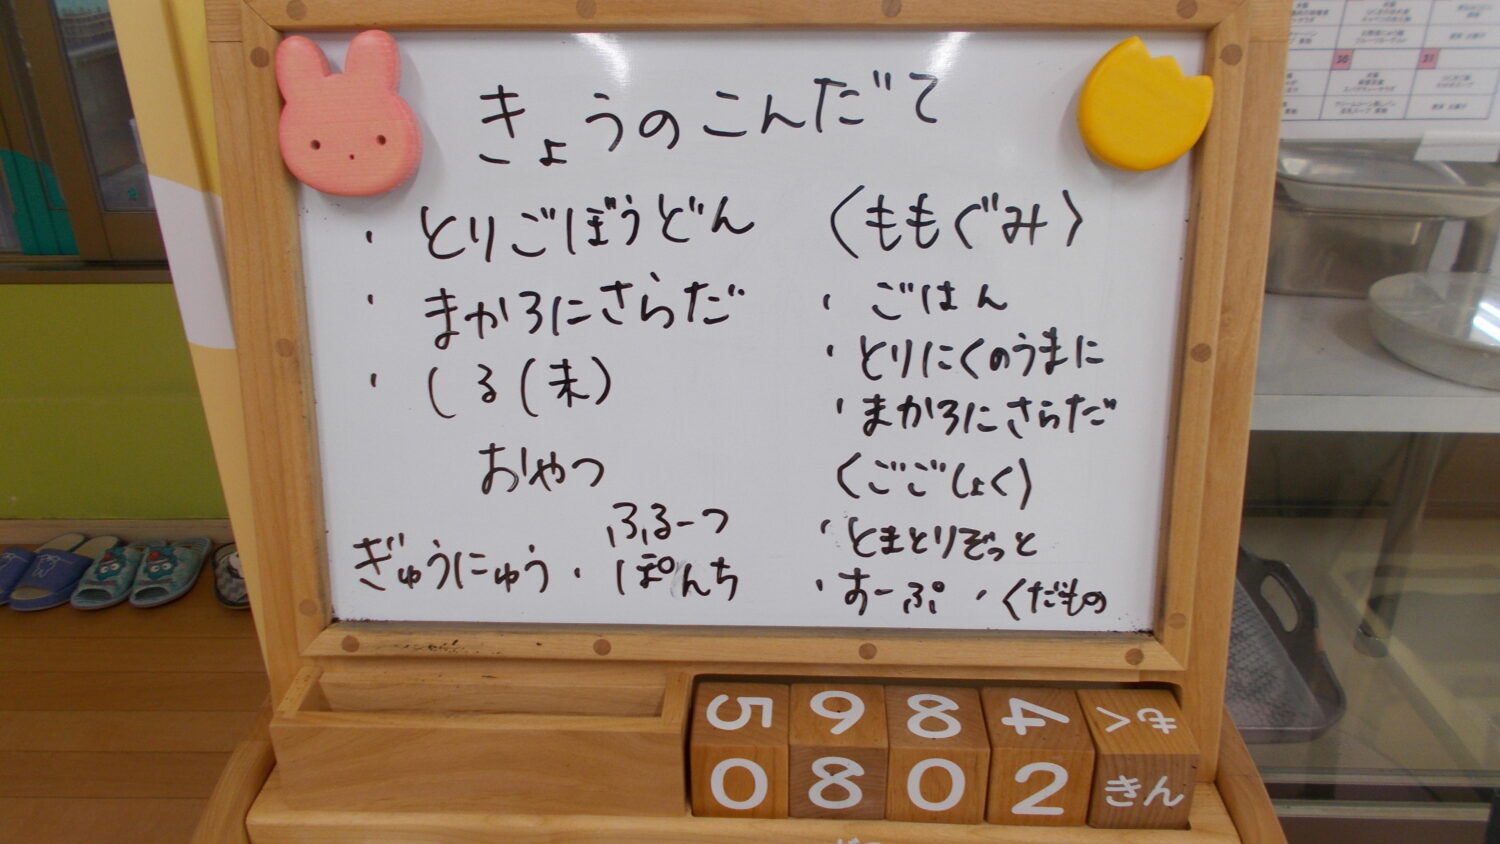 きょうのこんだて
・とりごぼうどん
・まかろにさらだ
・しる(未)
おやつ
ぎゅうにゅう・ふるーつ
ぽんち
〈ももぐみ〉
・ごはん
・とりにくのうまに
・まかろにさらだ
〈ごごしょく〉
・とまとりぞっと
・すーぷ・くだもの
5 9 8 4 もく
0 8 0 2 きん
30
31